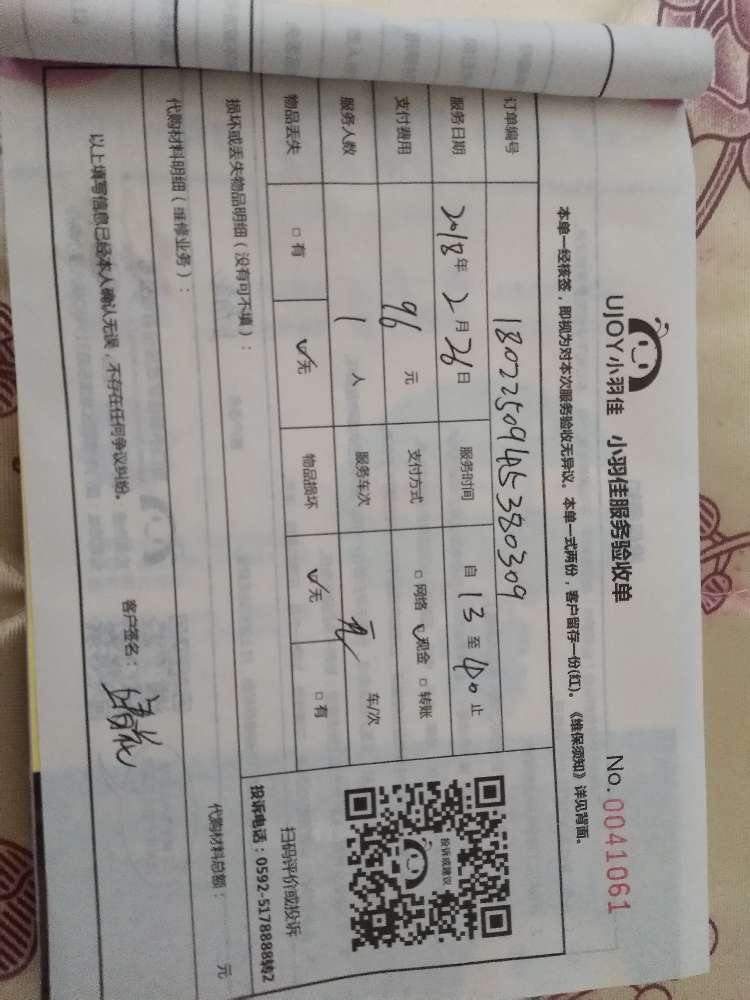 UJOY小羽佳 小羽佳服务验收单
No.0041061
本单一经核签，即视为对本次服务验收无异议。本单一式两份，客户留存一份(红)。《维保须知》详见背面。
订单编号 180225094538030​9
服务日期 2018年2月26日 服务时间 自 13 至 止
支付费用 96 元 支付方式 □网络 ✓现金 □转账
服务人数 1 人 服务车次 无 车/次
物品丢失 □有 ✓无 物品损坏 ✓无 □有
损坏或丢失物品明细（没有可不填）：
代购材料明细（维修业务）：
代购材料总额： 元
以上填写信息已经本人确认无误，不存在任何争议纠纷。 客户签名：
投诉或建议
扫码评价或投诉
投诉电话：0592-5178888转2